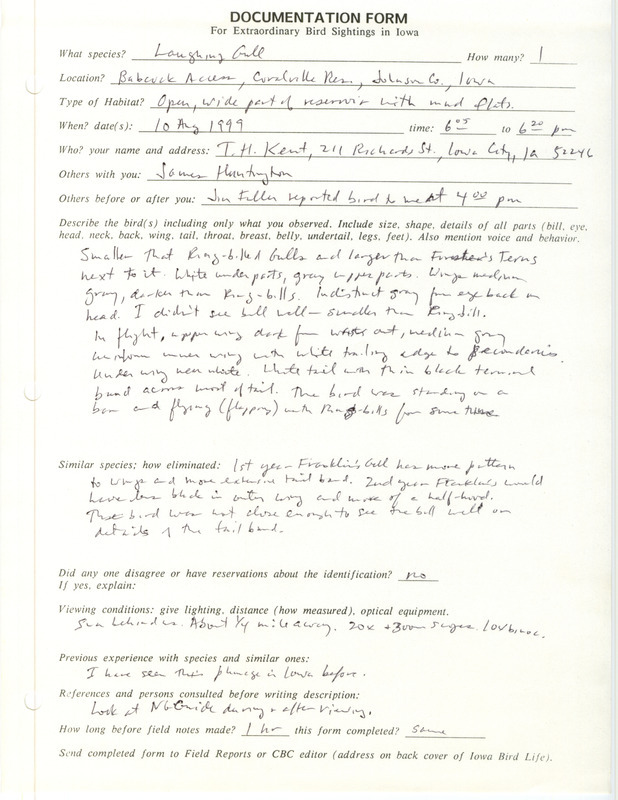 DOCUMENTATION FORM
For Extraordinary Bird Sightings in Iowa
What species? Laughing Gull How many? 1
Location? Babcock Access, Coralville Res., Johnson Co., Iowa
Type of Habitat? Open, wide part of reservoir with mud flats.
When? date(s): 10 Aug 1999 time: 6:05 to 6:20 pm
Who? your name and address: T. H. Kent, 211 Richards St., Iowa City, Ia 52246
Others with you: James Huntington
Others before or after you: Jim Fuller reported bird to me at 4:00 pm
Describe the bird(s) including only what you observed. Include size, shape, details of all parts (bill, eye,
head, neck, back, wing, tail, throat, breast, belly, undertail, legs, feet). Also mention voice and behavior.
Smaller that Ring-billed Gulls and larger than Forster's Terns
next to it. White underparts, gray upper parts. Wings medium
gray, darker than Ring-bills. Indistinct gray from eye back on
head. I didn't see bill well - smaller than Ringbill.
In flight, upper wing dark from wrist out, medium gray
uniform inner wing with white trailing edge to secondaries.
Under wing near white. White tail with thin black terminal
band across most of tail. The bird was standing on a
bar and flying (flapping) with Ring-bills for some time
Similar species; how eliminated: 1st year Franklin's Gull has more pattern
to wings and more extensive tail band. 2nd year Franklin's would
have less black in outer wing and more of a half-hood.
The bird was not close enough to see the bill well or
details of the tail band.
Did any one disagree or have reservations about the identification? no
If yes, explain:
Viewing conditions: give lighting, distance (how measured), optical equipment.
Sun behind us. About 1/4 mile away. 20x + zoom scopes. 10x binoc.
Previous experience with species and similar ones:
I have seen this plumage in Iowa before.
References and persons consulted before writing description:
Look at NG Guide during + after viewing.
How long before field notes made? 1 hr this form completed? same
Send completed form to Field Reports or CBC editor (address on back cover of Iowa Bird Life).